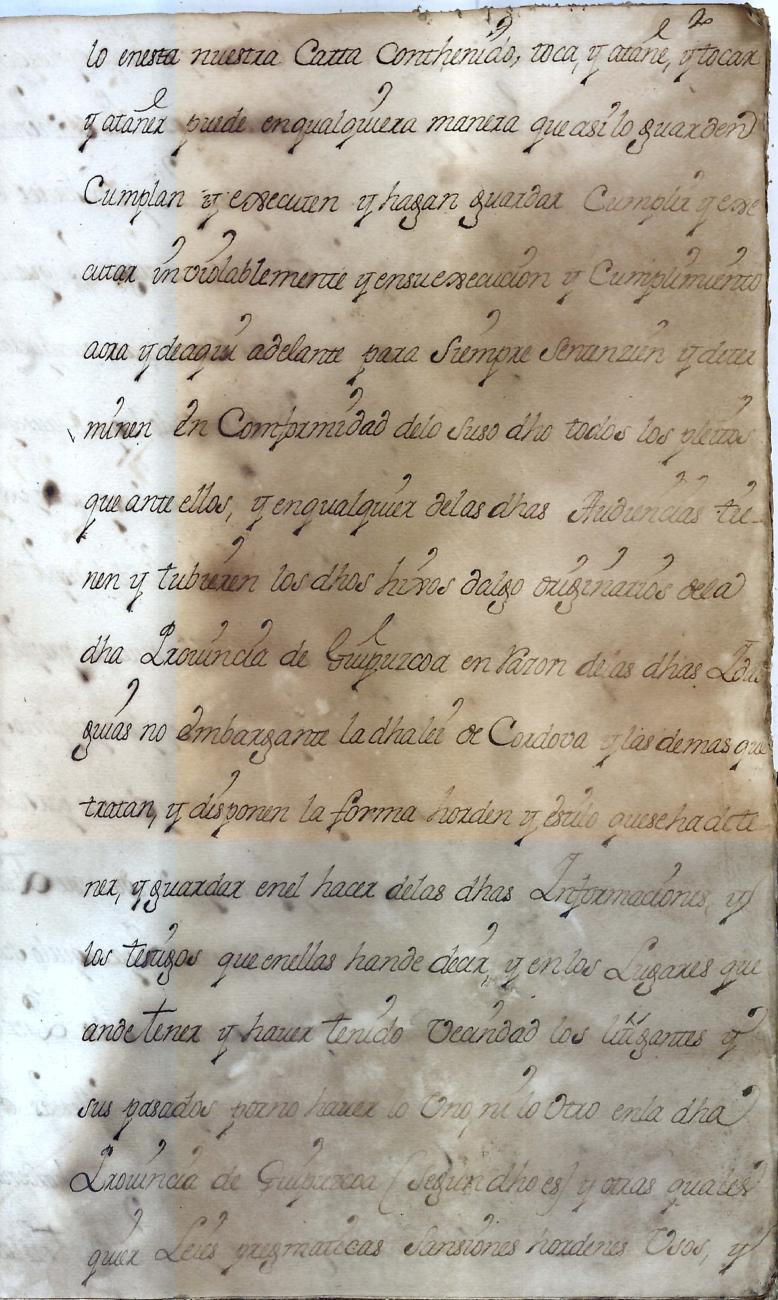 lo enesta nuestra Carta Conthenido, toca, y atañe, y tocar
y atañer puede enqualquiera manera que asi lo guarden
Cumplan y executen y hagan guardar Cumplir y exe
cutar inviolablemente y ensu execucion y Cumplimiento
aora y deaqui adelante para Siempre Sentenzien y deter
minen en Comformidad delo Suso dho todos los pleitos
que ante ellos, y enqualquier delas dhas Audiencias tie-
nen y tubieren los dhos hixos dalgo originarios dela
dha Provincia de Guipuzcoa en Razon delas dhas Ydal
guias no embargante la dha lei de Cordova y las demas que
tratan, y disponen la forma horden y estilo que se ha de te
ner, y guardar enel hacer delas dhas Informaciones, y
los testigos que enellas han de decir, y en los Lugares que
ande tener y haver tenido Vecindad los litigantes y
sus pasados por no haver lo Uno, ni lo Otro enla dha
Provincia de Guipuzcoa (Segun dho es) y otras quales
quier Leies pregmaticas Sansiones hordenes Usos, y